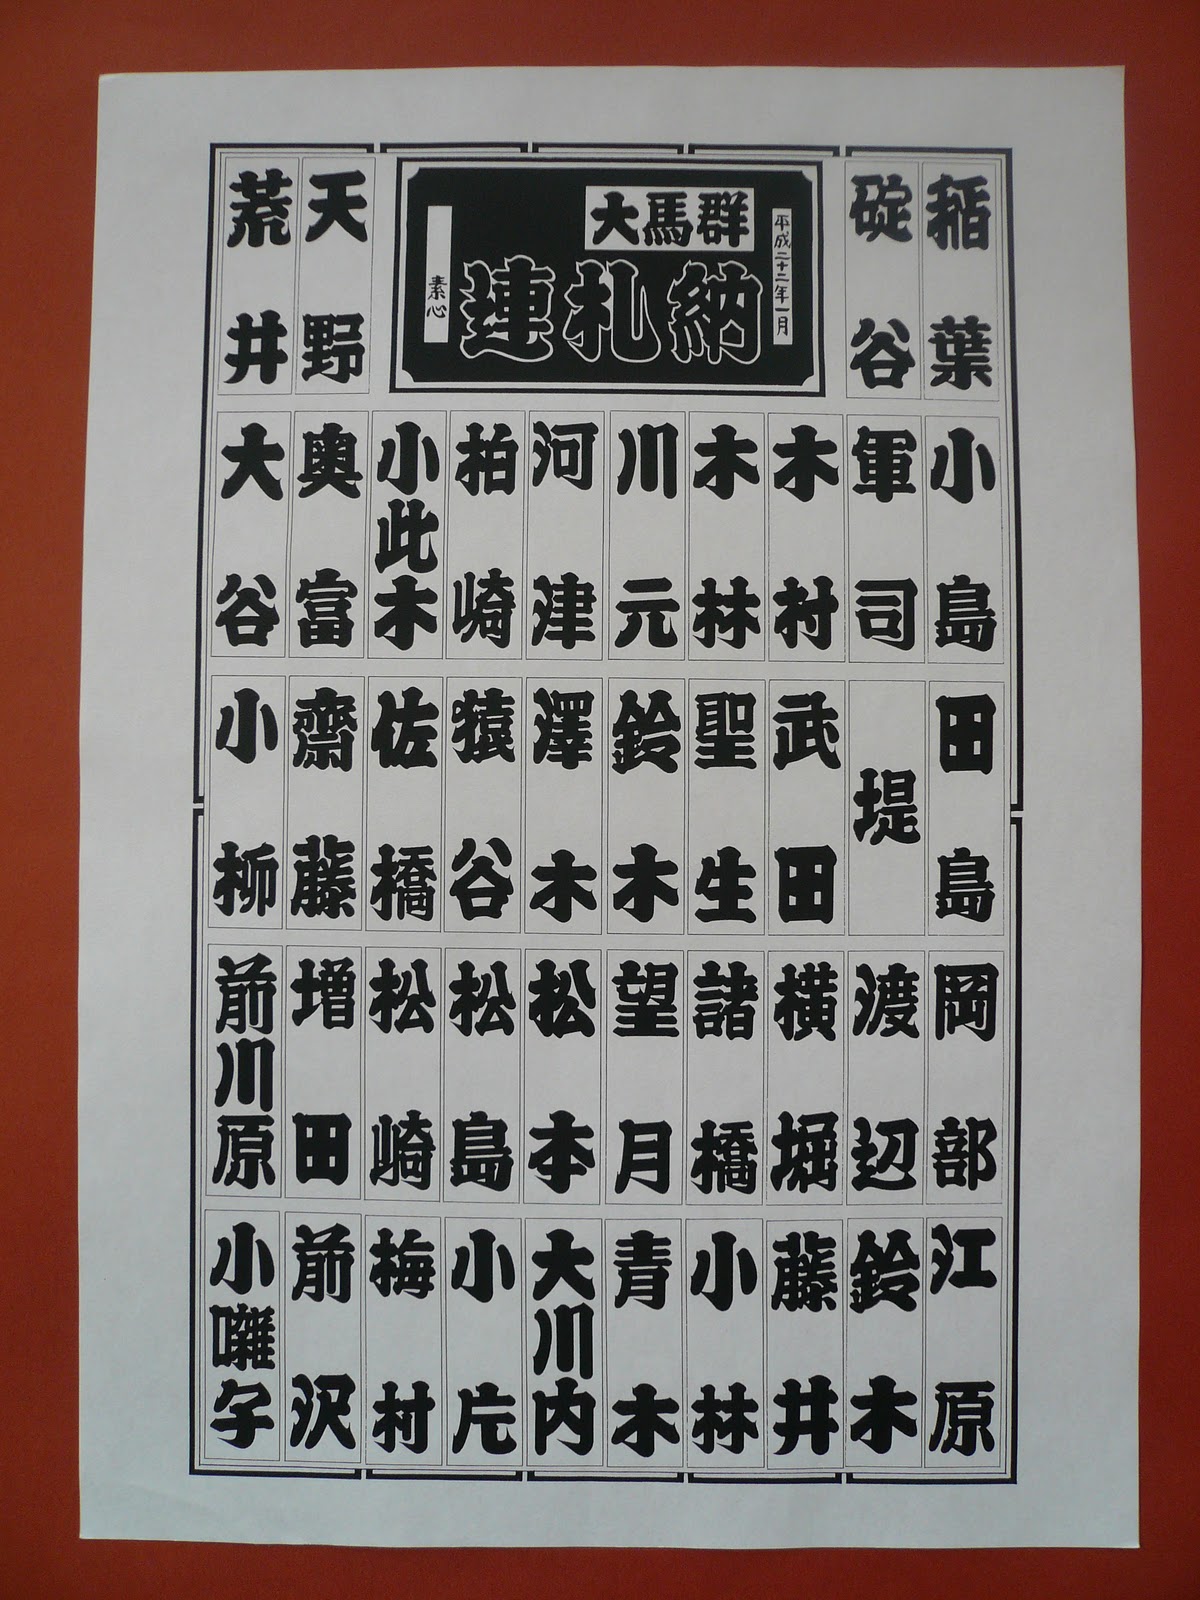 稲葉
碇谷
平成二十二年一月
群馬大
納札連
素心
天野
荒井
小島
軍司
木村
木林
川元
河津
柏崎
小此木
奥富
大谷
田島
堤
武田
聖生
鈴木
澤木
猿谷
佐橋
齋藤
小柳
岡部
渡辺
横堀
諸橋
望月
松本
松島
松崎
増田
前川原
江原
鈴木
藤井
小林
青木
大川内
小片
梅村
前沢
小囃子